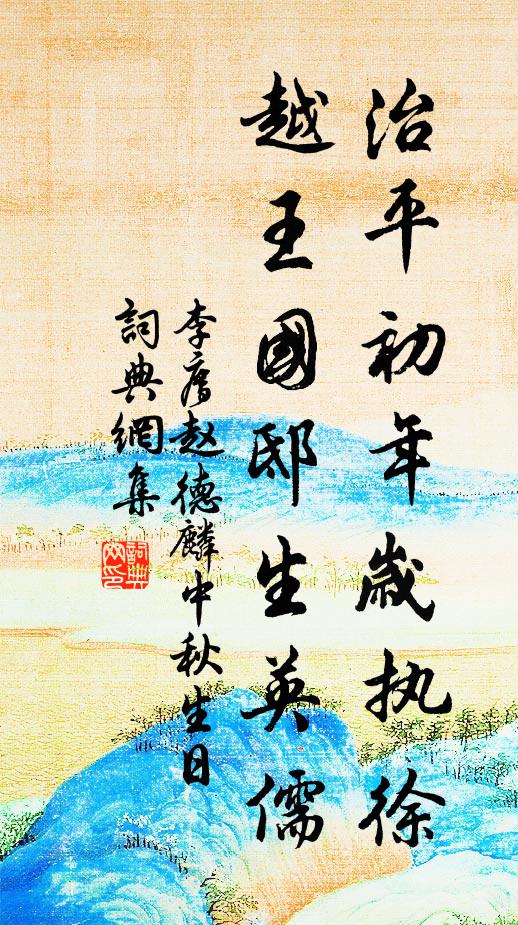 治平初年歲执徐
越王國邸生英儒
李廌赵德麟中秋生日
詞典網集
詞典
网印